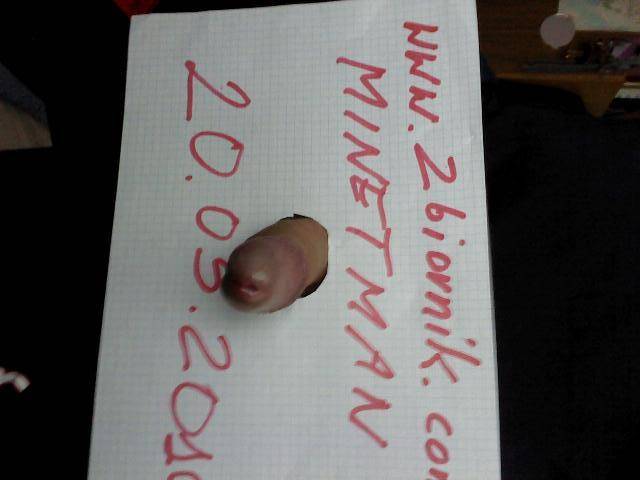 www.zbiornik.com
MINETMAN
20.05.2010